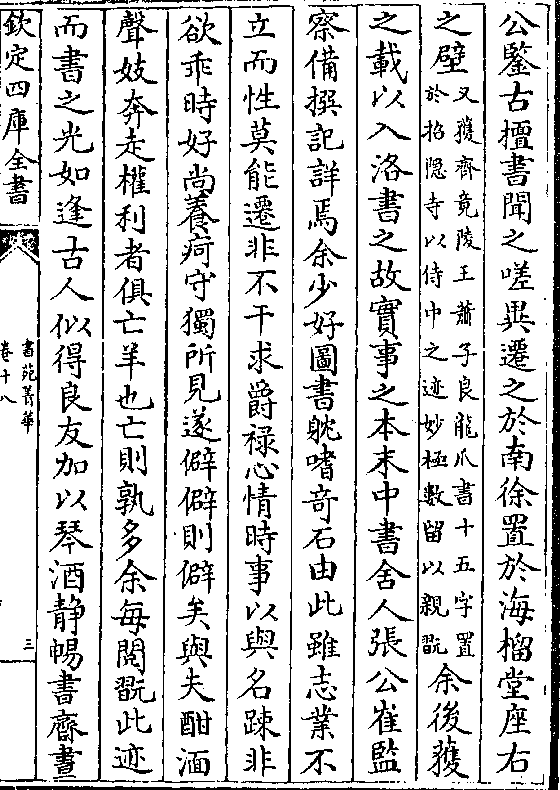 公鑒古擅書聞之嗟異遷之於南徐置於海榴堂座右
之壁又獲齊竟陵王蕭子良龍爪書十五字置
於招隠寺以侍中之迹妙極數留以親翫余後獲
之載以入洛書之故實事之本末中書舍人張公崔監
察備撰記詳焉余少好圖書躭嗜奇石由此雖志業不
立而性莫能遷非不干求爵禄心情時事以與名踈非
欲乖時好尚養疴守獨所見遂僻僻則僻矣與夫酣湎
聲妓奔走權利者俱亡羊也亡則孰多余每閱翫此迹
而書之光如逢古人似得良友加以琴酒静暢書齋晝
欽定四庫全書
書苑菁華
卷十八
三